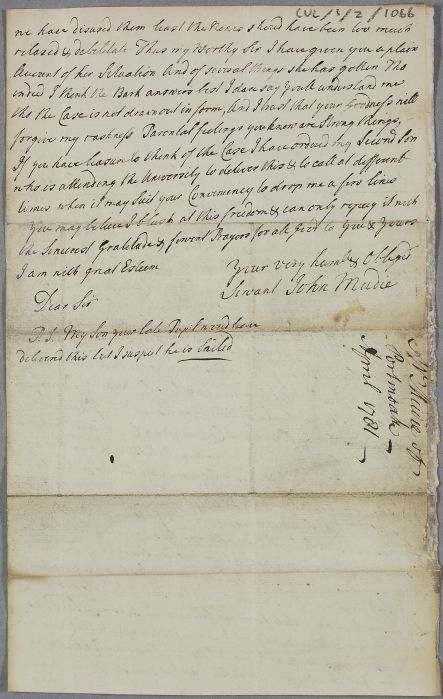 CUL/1/2/1066
we have disused them least the Nerves should have been too much
relaxed & debilitate Thus my Worthy Sir I have given you a plain
Account of her Situation And of several things she has gotten Tho
indeed I think the Bark answers best I dare say you'll understand me
tho the Case is not drawn out in form, And I trust that your Goodness will
forgive my rashness Parental feelings you know are Strong things,
If you have leasure to think of the Case I have ordered my Second Son
who is attending the University to deliver this & to call at different
times when it may Suit your Conveniency to drop me a few lines
You may believe I blush at this freedom & can only repay it with
the Sincerest Gratitude & fervent Prayers for all good to you & yours
I am with great Esteem
Your very humble & Obliged
Dear Sir
Servant John Mudie
P.S. My Son your late Pupil would have
delivered this but I suspect he is Sailed
Portmoak
April 1781